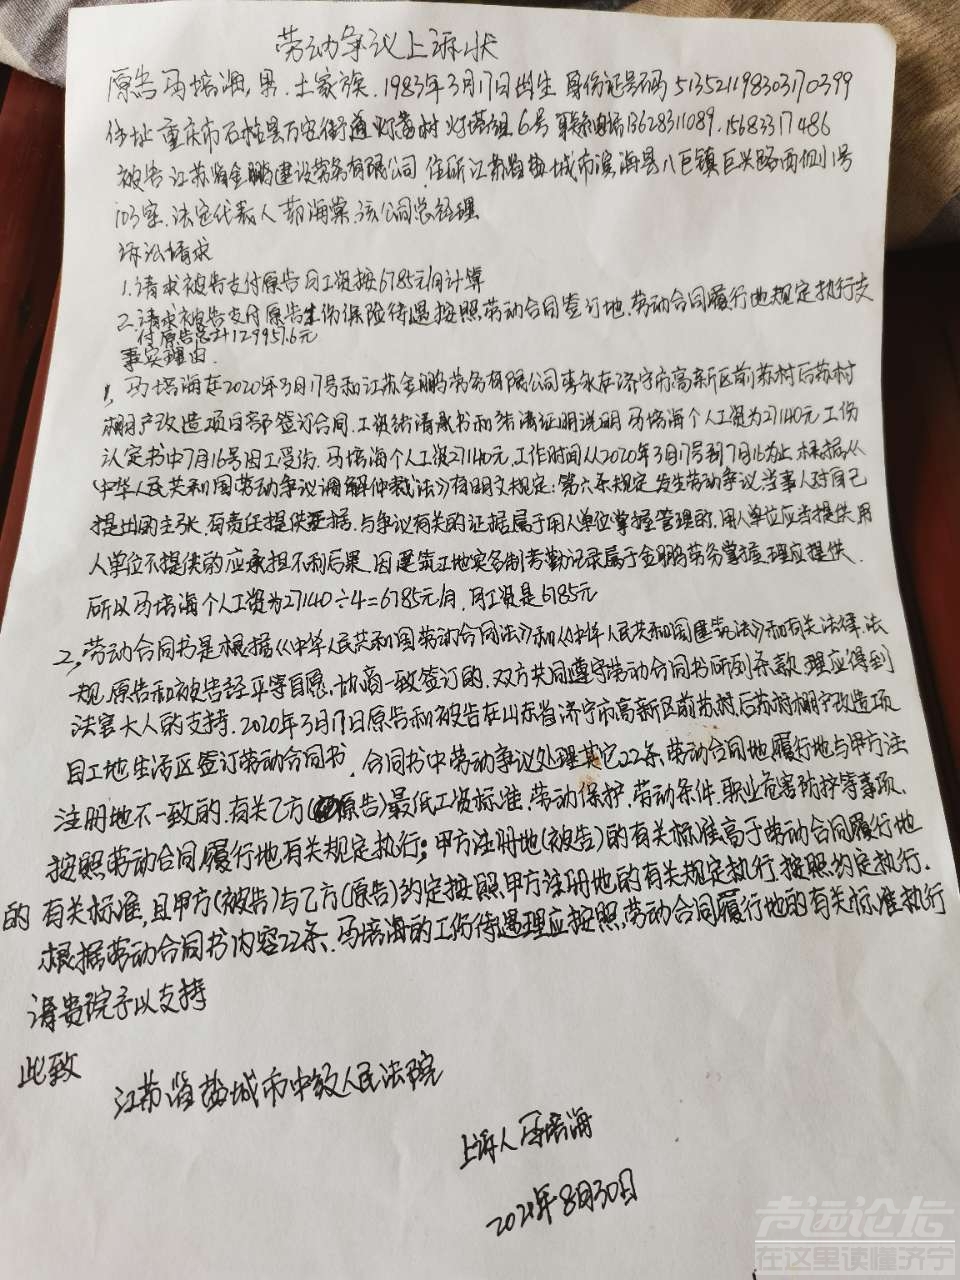 劳动争议上诉状
原告马培海,男.土家族.1983年3月17日出生 身份证号码513521198303170399
住址重庆市石柱县万安街道灯盏村灯塔组6号 联系电话13628311089.15683317486
被告江苏省金鹏建设劳务有限公司.住所江苏省盐城市滨海县八巨镇巨兴路西侧1号
103室.法定代表人 海棠.该公司总经理
诉讼请求
1.请求被告支付原告月工资按6785元/月计算
2.请求被告支付原告工伤保险待遇按照劳动合同签订地.劳动合同履行地规定执行支
付原告总计129957.6元
事实理由.
1、马培海在2020年3月17号和江苏金鹏劳务有限公司李永在济宁市高新区前苏村后苏村
棚户改造项目部签订合同.工资结清承书和结清证明说明 马培海个人工资为27140元 工伤
认定书中7月16号因工受伤.马培海个人工资27140元.工作时间从2020年3月17号到7月16为止.根据从
《中华人民共和国劳动争议调解仲裁法》有明文规定:第六条规定.发生劳动争议.当事人对自己
提出的主张.有责任提供证据.与争议有关的证据属于用人单位掌握管理的.用人单位应当提供.用
人单位不提供的应承担不利后果.因建筑工地实名制考勤记录属于金鹏劳务掌握.理应提供.
所以马培海个人工资为27140÷4=6785元/月.月工资是6785元
2,劳动合同书是根据《中华人民共和国劳动合同法》和《中华人民共和国建筑法》和有关法律.法
规.原告和被告经平等自愿.协商一致签订的.双方共同遵守劳动合同书所列条款.理应得到
法官大人的支持.2020年3月17日原告和被告在山东省济宁市高新区前苏村.后苏村棚户改造项
目工地生活区签订劳动合同书.合同书中劳动争议处理其它22条.劳动合同地履行地与甲方法
注册地不一致的.有关乙方(原告)最低工资标准.劳动保护.劳动条件.职业危害防护等事项.
按照劳动合同履行地有关规定执行;甲方注册地(被告)的有关标准高于劳动合同履行地
的 有关标准,且甲方(被告)与乙方(原告)约定按照甲方注册地的有关规定执行.按照约定执行.
根据劳动合同书内容22条.马培海的工伤待遇理应按照.劳动合同履行地的有关标准执行
请贵院予以支持
此致
江苏省盐城市中级人民法院
上诉人马培海
2021年8月30日
声远论坛
在这里读懂济宁